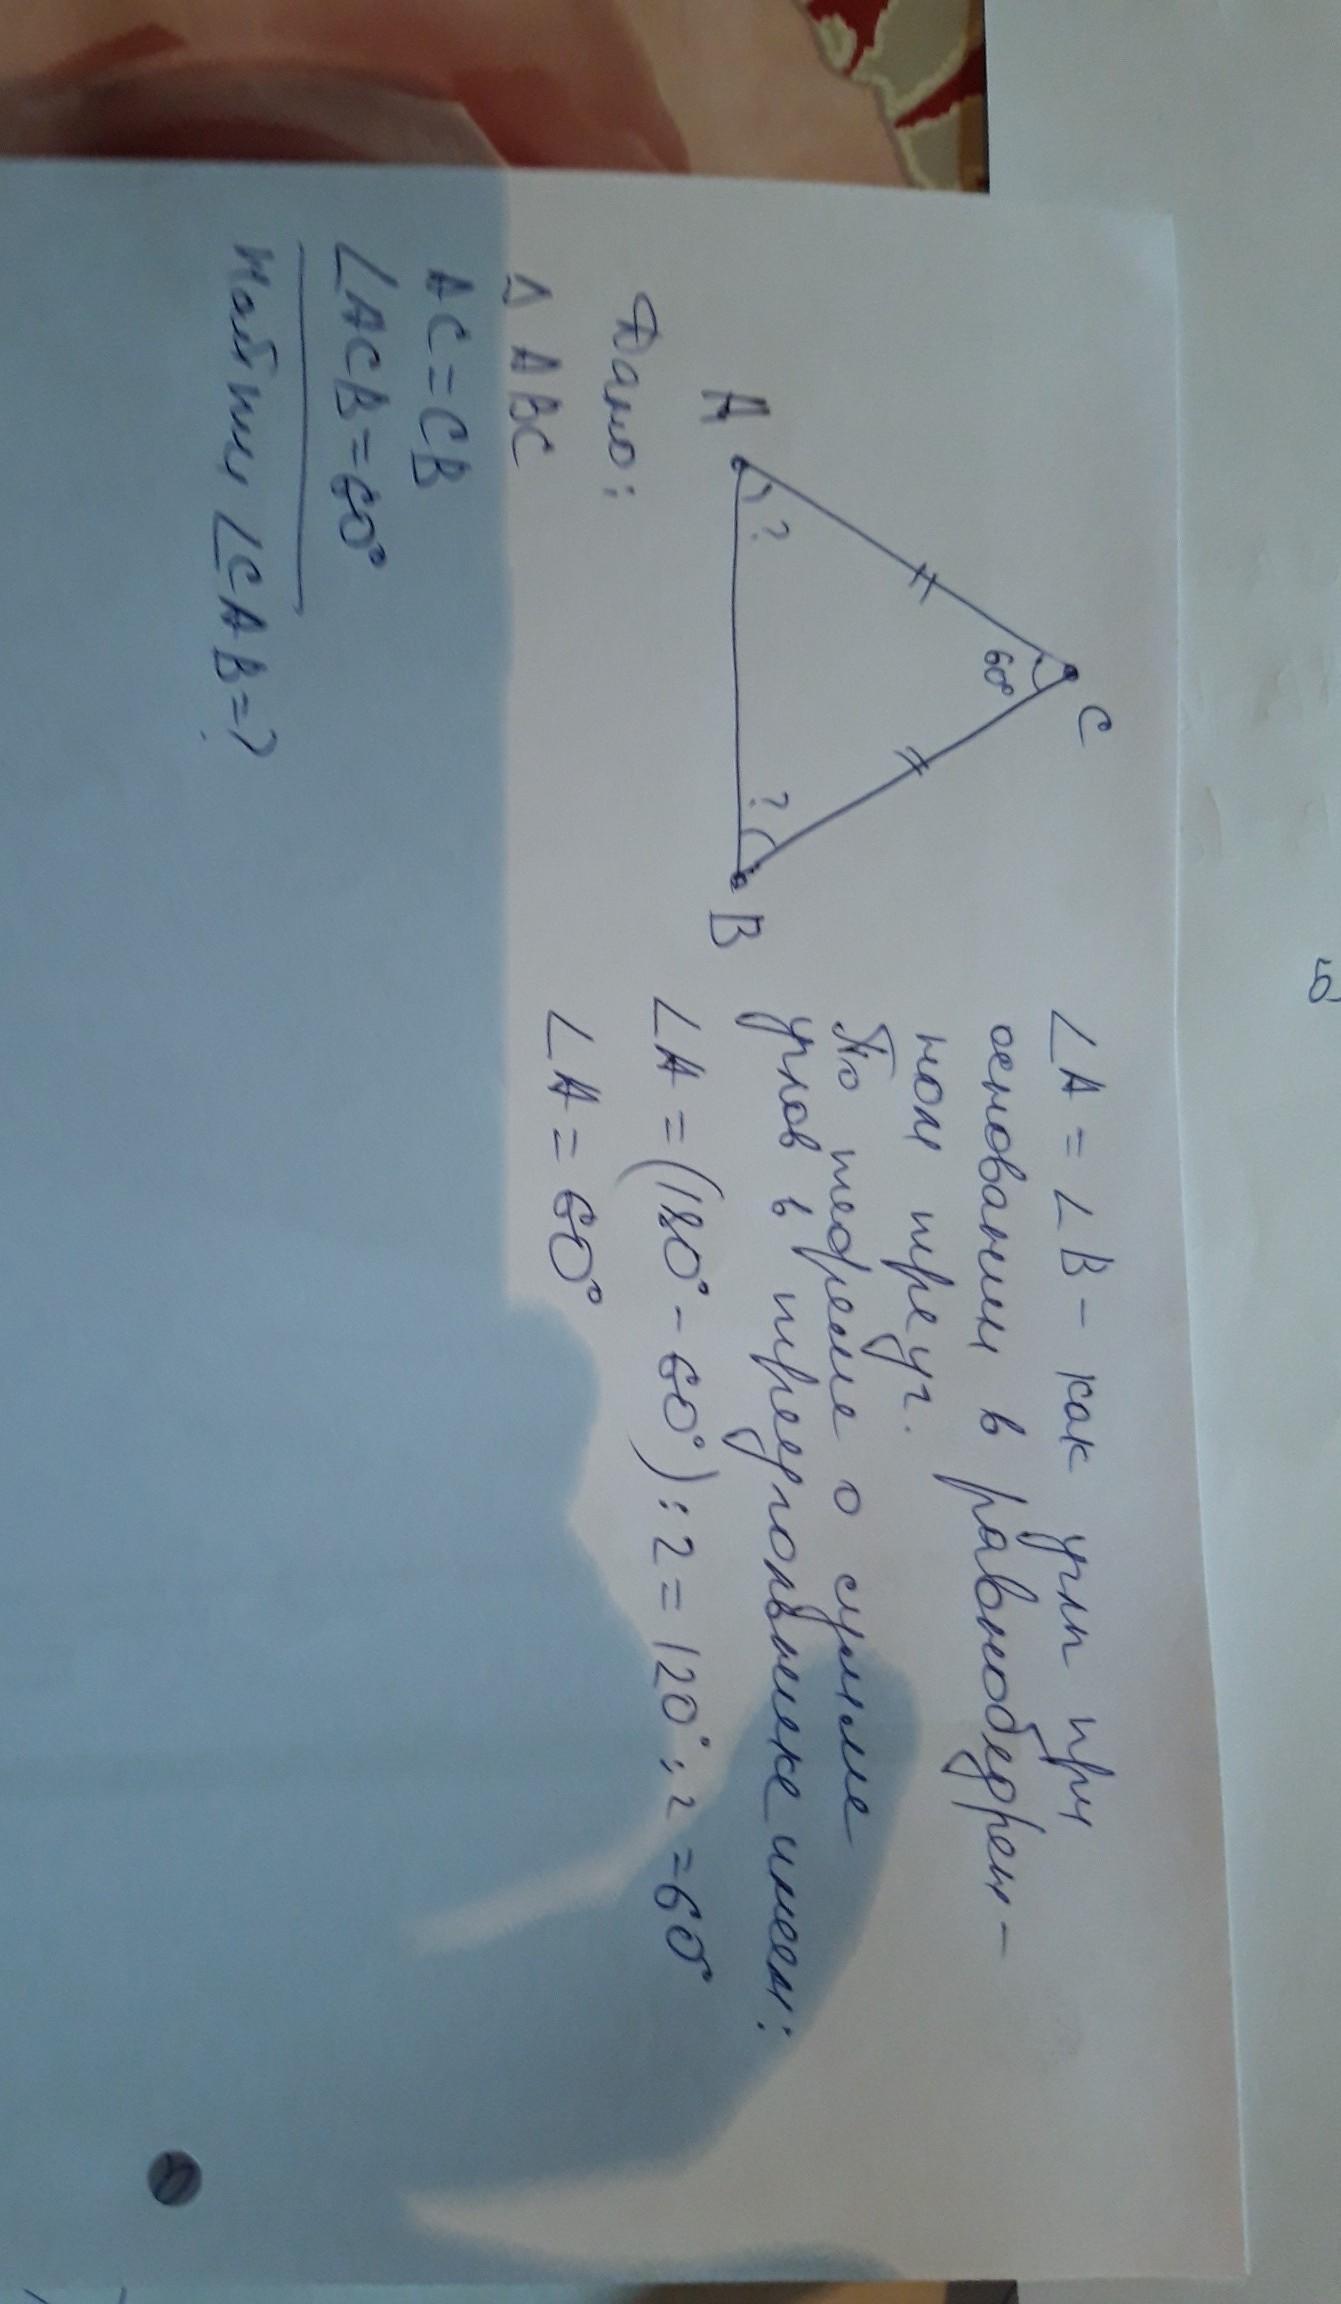 C
60°
A
?
?
B
Дано:
Δ ABC
AC = CB
∠ACB = 60°
Найти ∠CAB = ?
∠A = ∠B - как углы при
основании в равнобедрен-
ном треуг.
По теореме о сумме
углов в треугольнике имеем:
∠A = (180° - 60°) : 2 = 120° : 2 = 60°
∠A = 60°